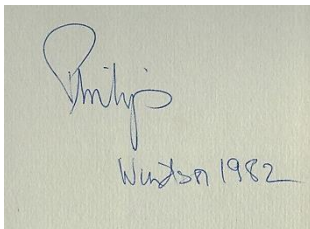 Philip
Windsor 1982